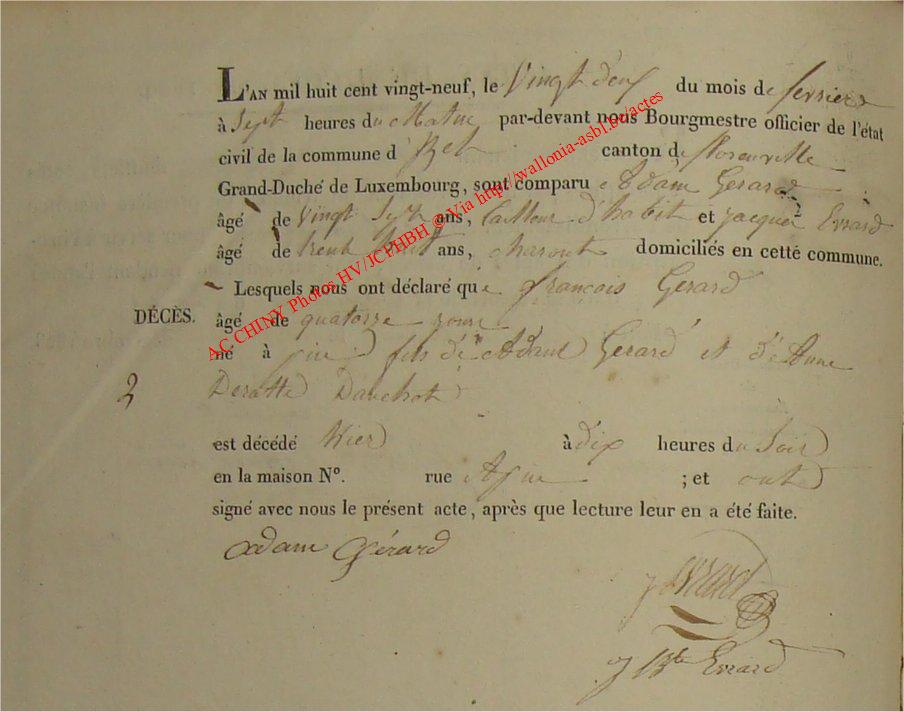 L'AN mil huit cent vingt-neuf, le Vingt deux du mois de fevrier
à Sept heures du Matin par-devant nous Bourgmestre officier de l'état
civil de la commune d' canton de florenville
Grand-Duché de Luxembourg, sont comparu e Adam Gerard
âgé de Vingt Sept ans, tailleur d'habit et jacque Evrard
âgé de trente huit ans, domiciliés en cette commune.
Lesquels nous ont déclaré que françois Gerard
DÉCÈS. âgé de quatorze jours
né à fils de Adam Gerard et d'Anne
2
est décédé Hier à dix heures du Soir
en la maison N°. rue ; et ont
signé avec nous le présent acte, après que lecture leur en a été faite.
adam Gérard
J Evrard
J Bte Evrard
AC CHINY Photos HV/JCPHBH @ Via http://wallonia-asbl.be/actes